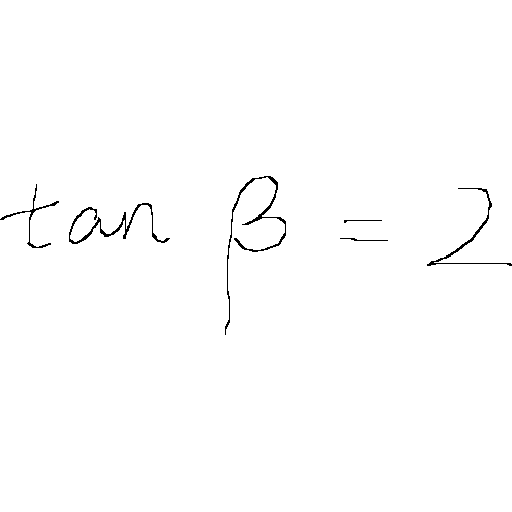 tan β = 2